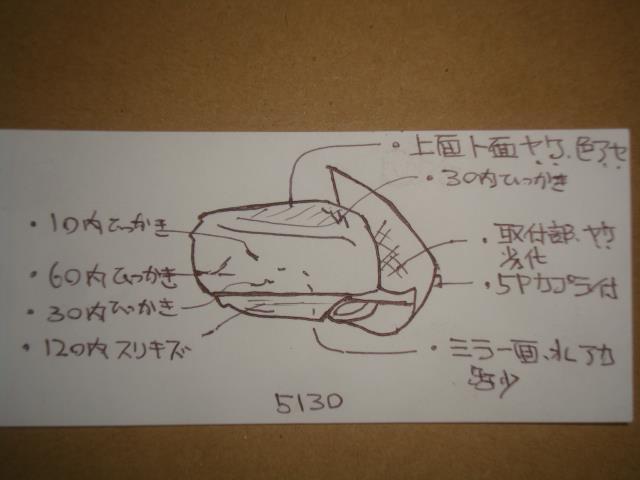 ・上面ト面ヤケ、色アセ
・30内ひっかき
・10内ひっかき
・取付部、ヤケ
劣化
・60内ひっかき
・5Pカプラ付
・30内ひっかき
・120内スリキズ
・ミラー面、水アカ
多少
5130